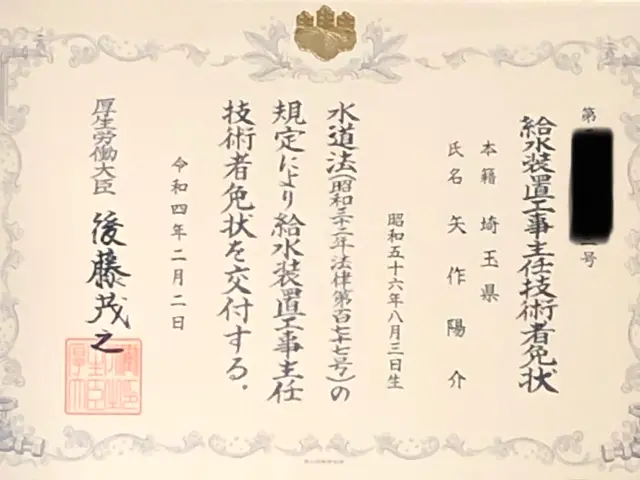 第
号
給水装置工事主任技術者免状
本籍 埼玉県
氏名 矢作陽介
昭和五十六年八月三日生
水道法(昭和三十二年法律第百七十七号)の
規定により給水装置工事主任
技術者免状を交付する.
令和四年二月二日
厚生労働大臣 後藤茂之